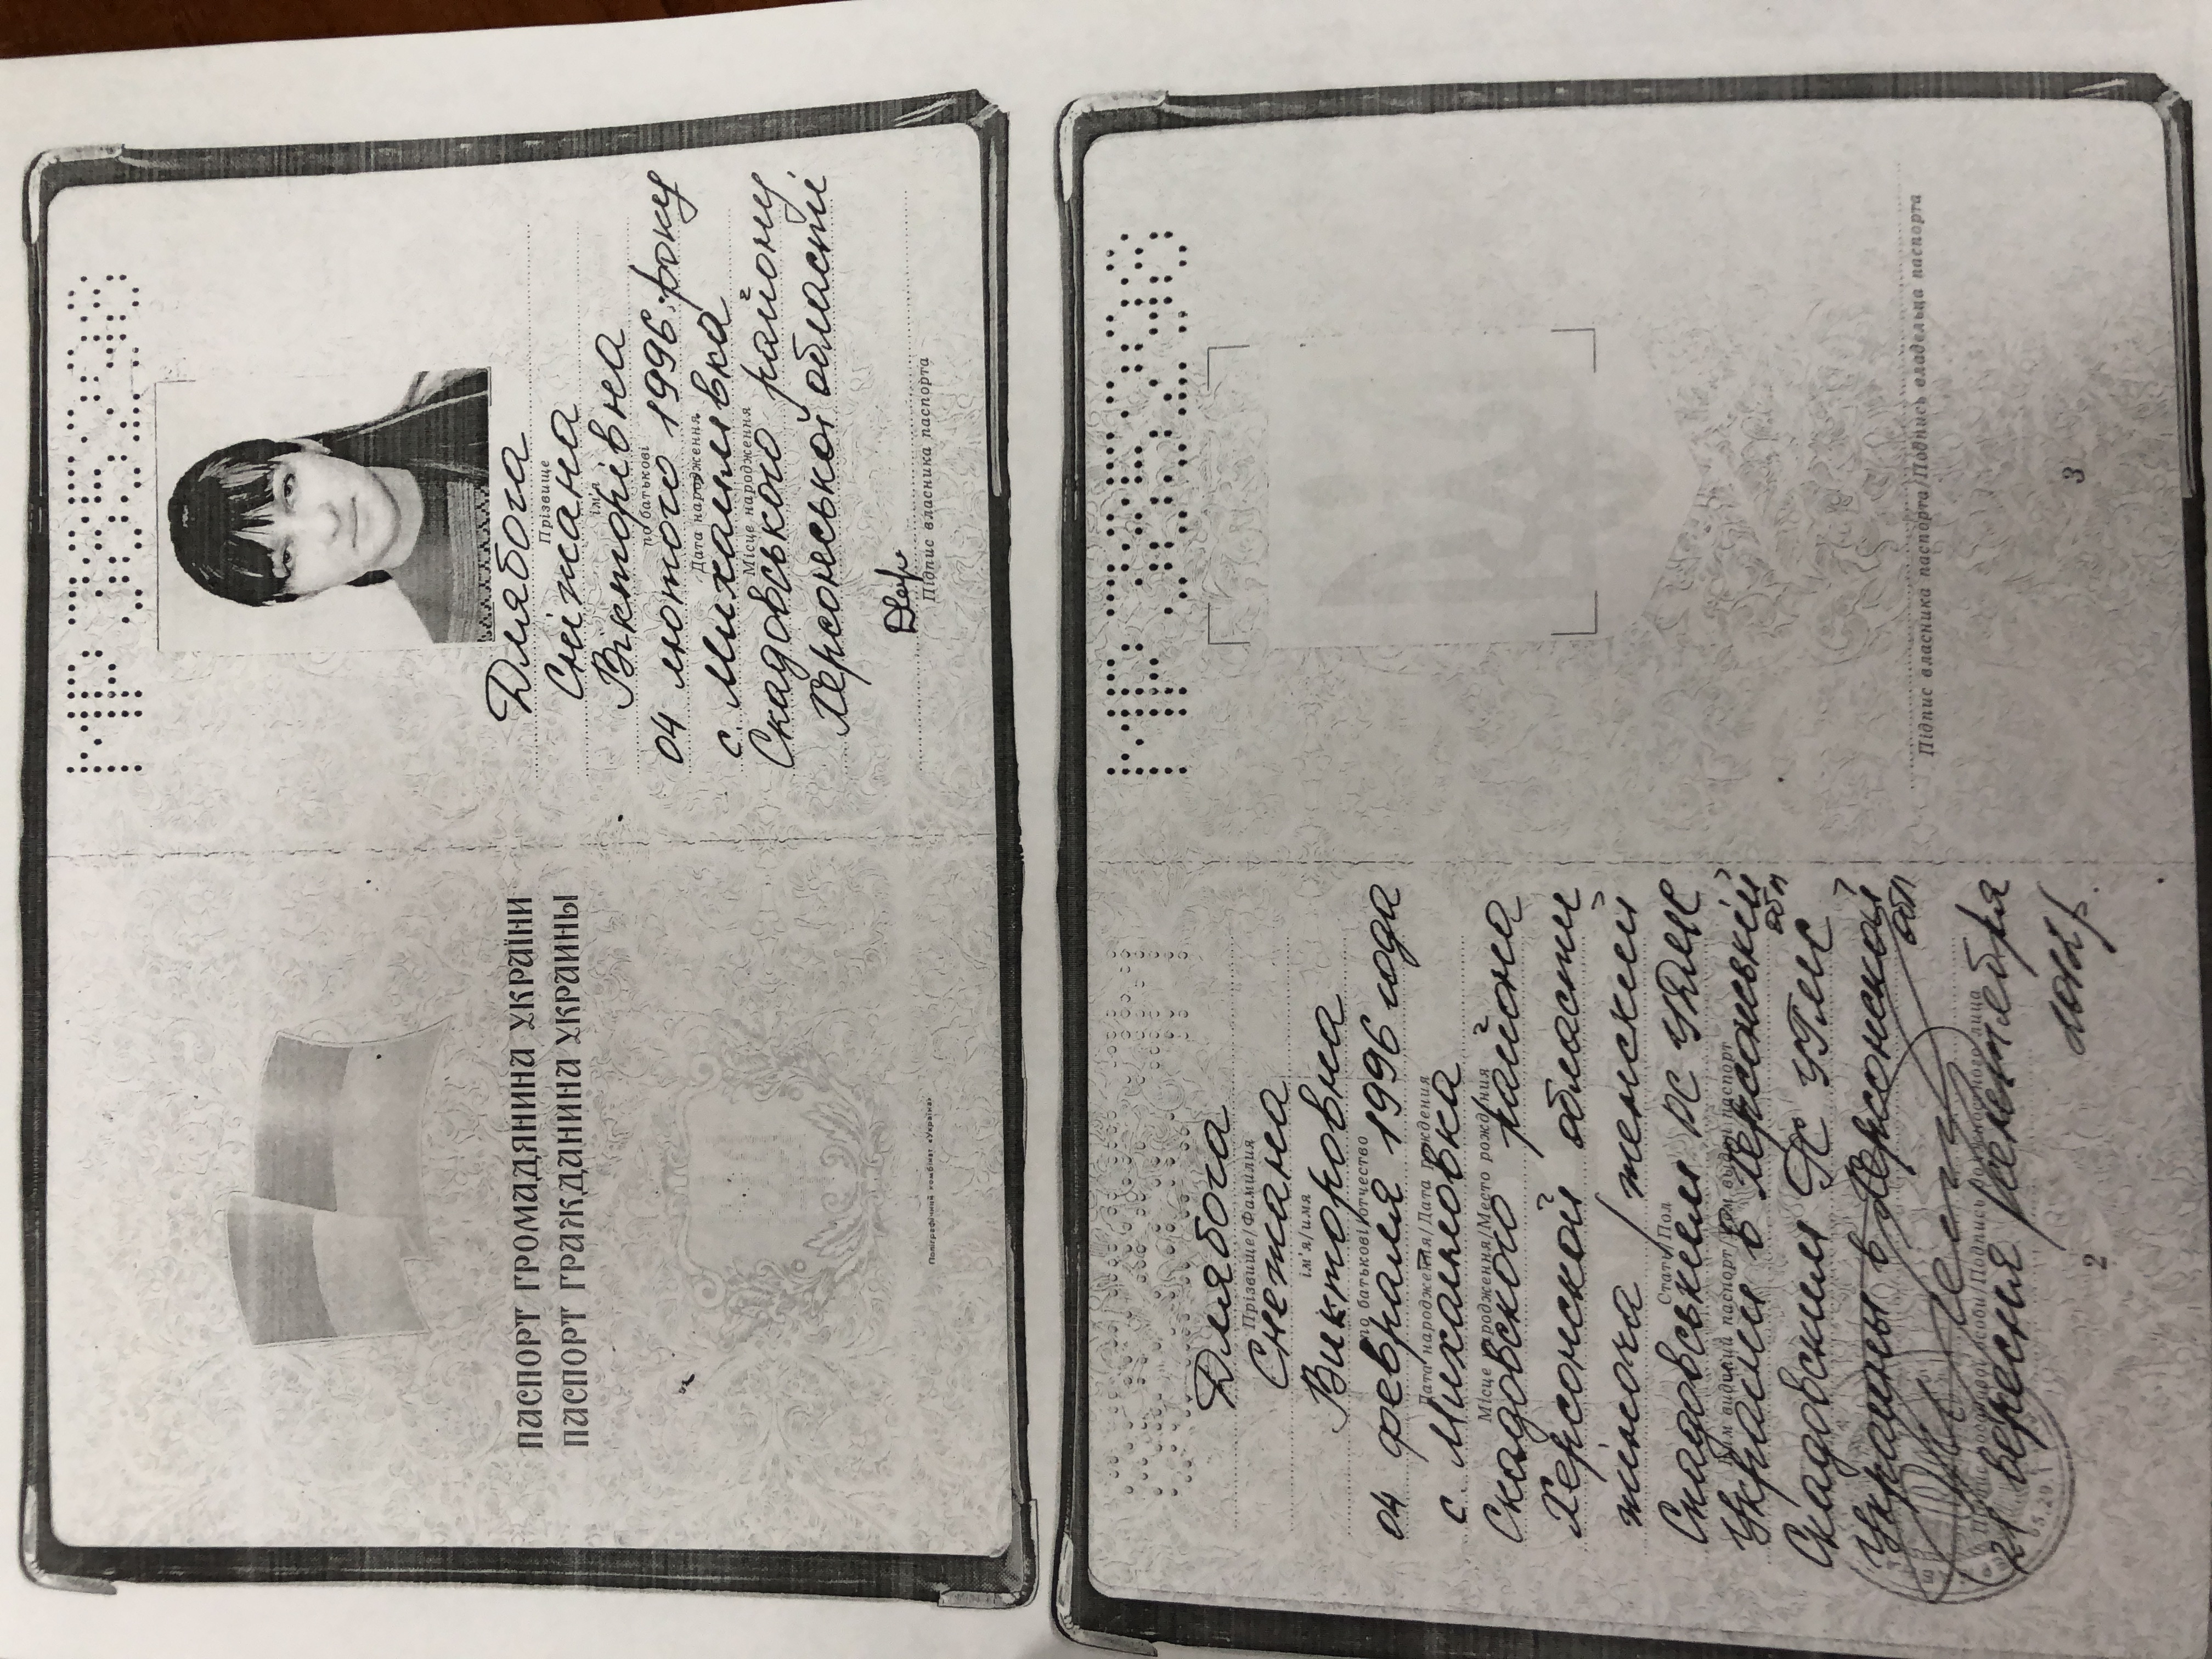 МР 385298
ПАСПОРТ ГРОМАДЯНИНА УКРАЇНИ
ПАСПОРТ ГРАЖДАНИНА УКРАИНЫ
Поліграфічний комбінат «Україна»
Длябога
Прізвище
Сніжана
ім'я
Вікторівна
по батькові
04 лютого 1996 року
Дата народження
с. Михайлівка
Місце народження
Скадовського району
Херсонської області
Підпис власника паспорта
Длябога
Прізвище/Фамилия
Снежана
ім'я/имя
Викторовна
по батькові/отчество
04 февраля 1996 года
Дата народження/Дата рождения
с. Михайловка
Місце народження/Место рождения
Скадовского района
Херсонской области
жіноча / женский
Стать/Пол
Скадовським РС УДМС
Ким виданий паспорт/Кем выдан паспорт
України в Херсонській
обл
Скадовским РС УГМС
Украины в Херсонской
обл
Підпис посадової особи/Подпись должностного лица
21 вересня /сентября
2012 р.
2
МР 385298
Підпис власника паспорта/Подпись владельца паспорта
3